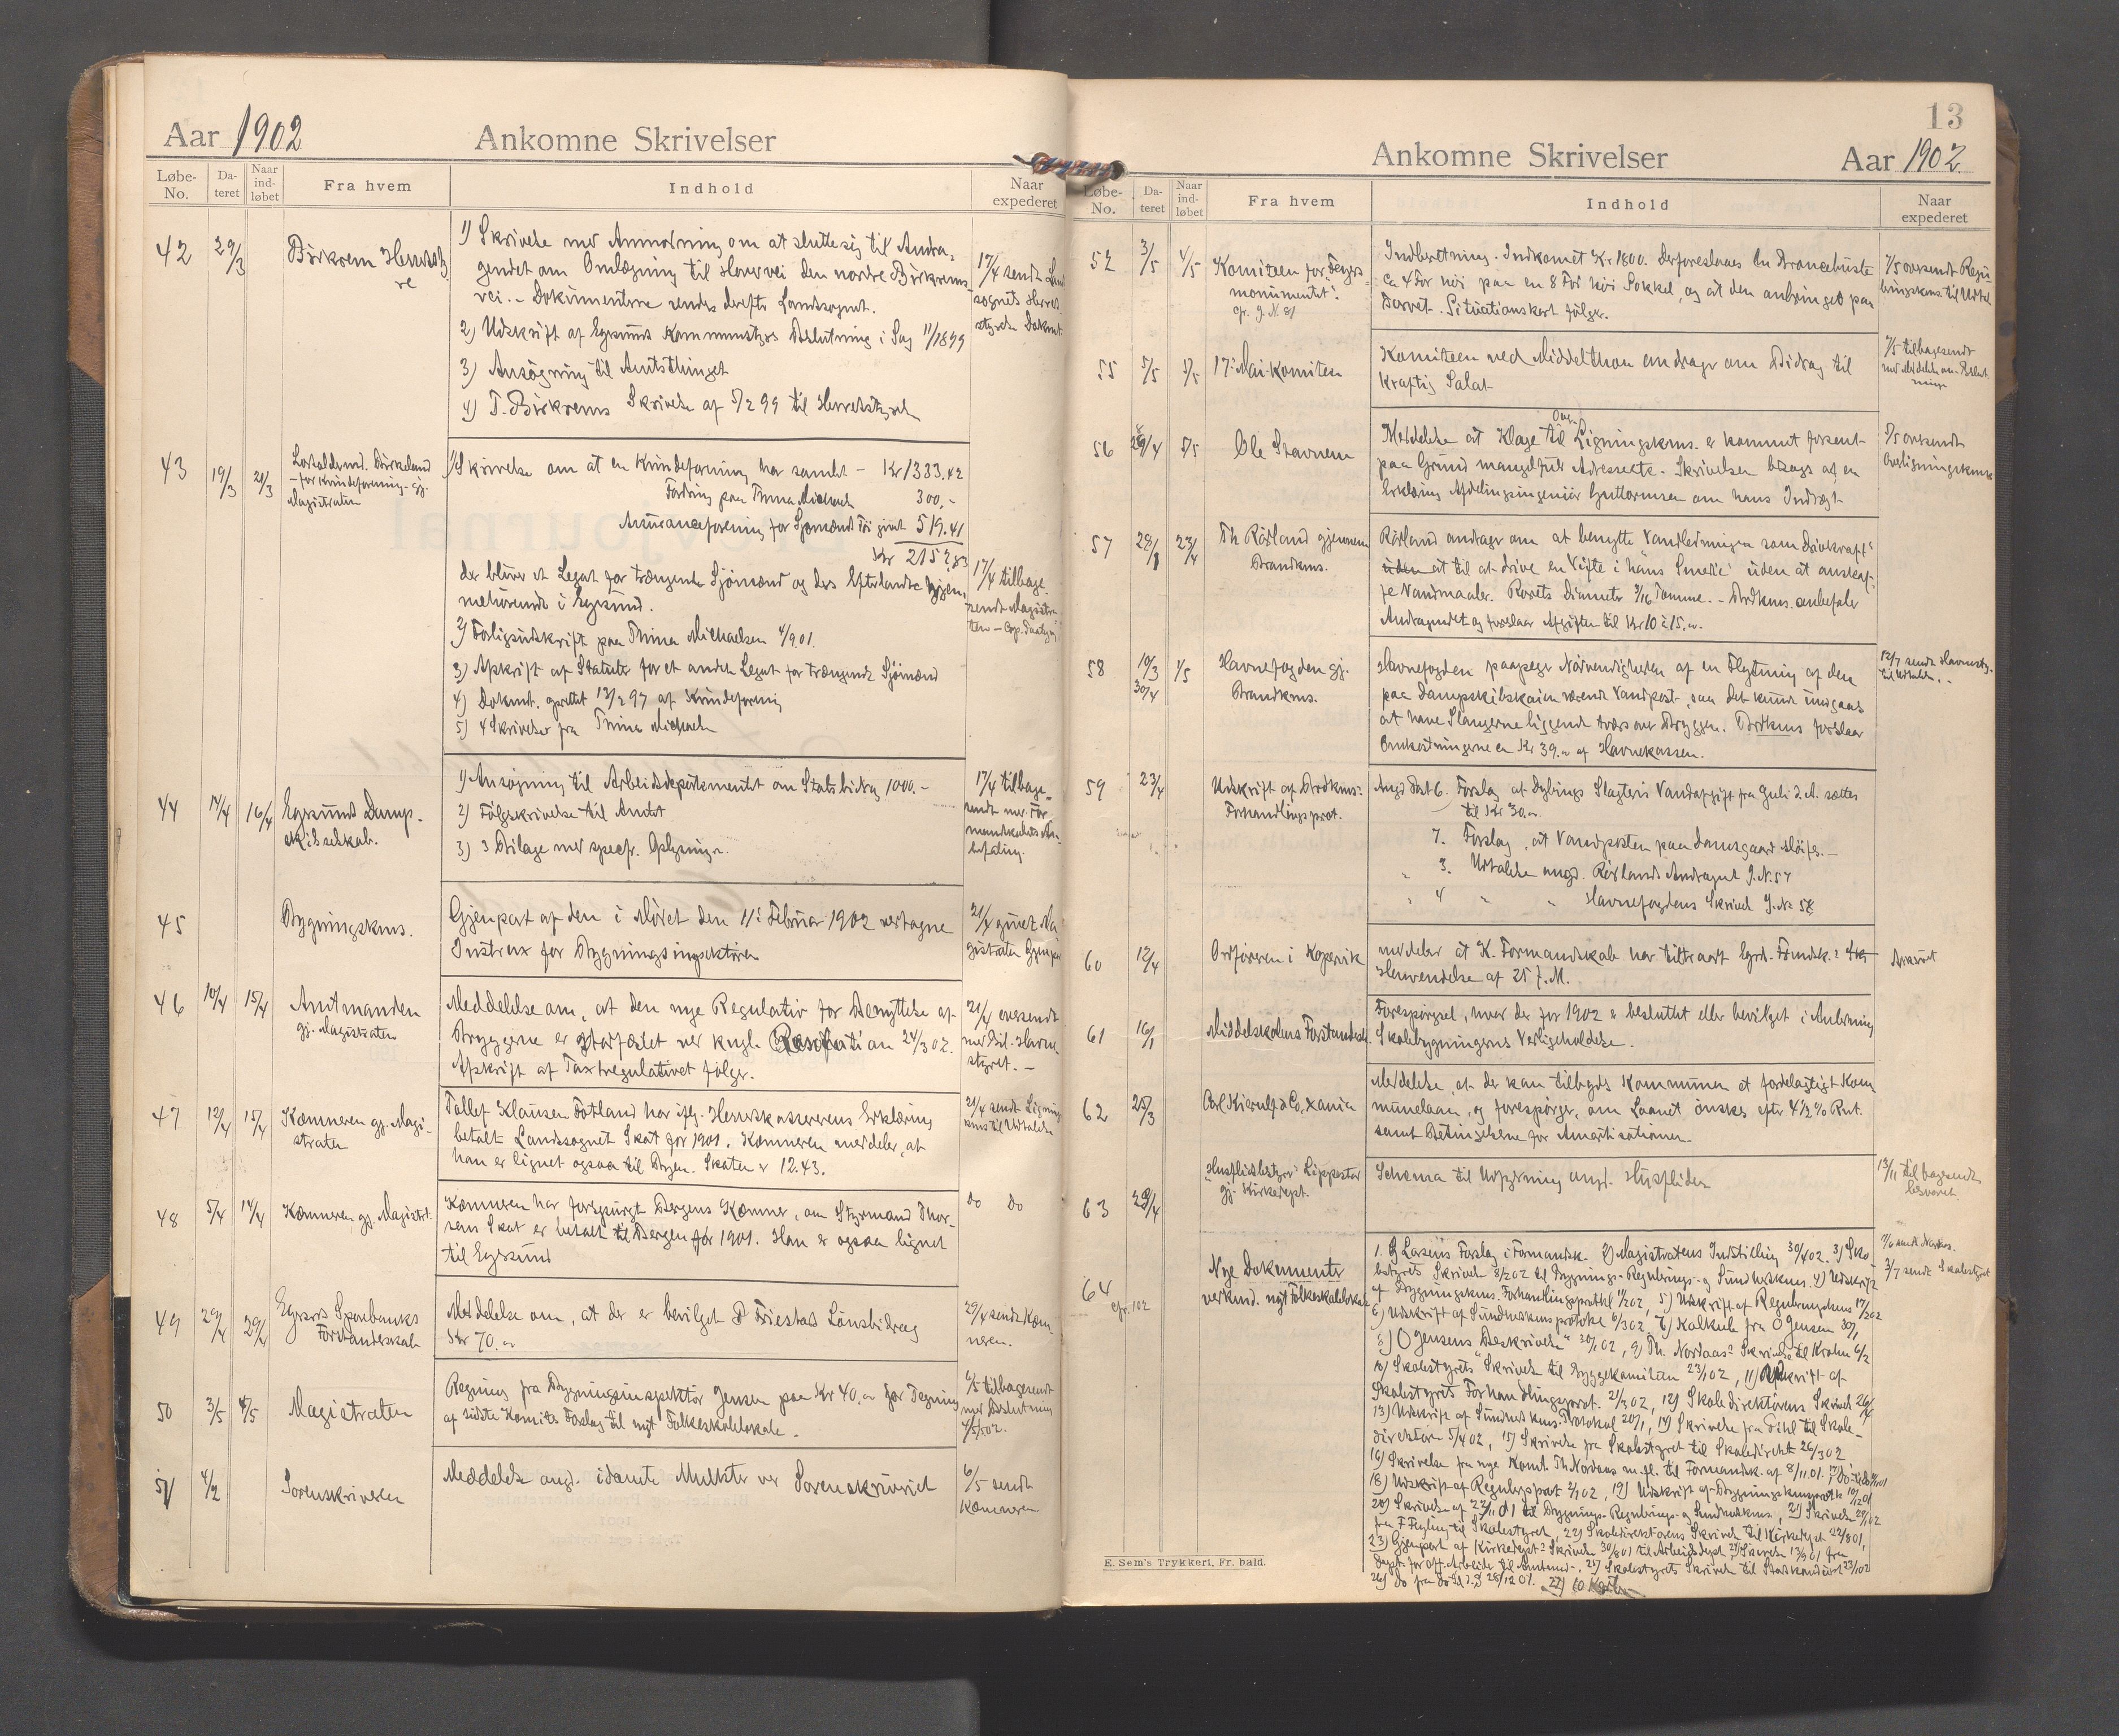 Aar 1902
Ankomne Skrivelser
Løbe-No.
Da-teret
Naar ind-løbet
Fra hvem
Indhold
Naar expederet
42
29/3
Birkrem Herreds
1) Skrivelse med Anmodning om at slutte sig til Andra-
gendet om Omlægning til Hovedvei den nordre Birkrems-
vei. - Dokumenterne sendes derefter Landsognet.
2) Udskrift af Egersunds Kommunestyres Beslutning i Sag 11/1899
3) Ansøgning til Amtsthinget
4) T. Birkrems Skrivelse af 5/2 99 til Herredsstyret
17/4 sendt Land
sognets Herred
styrelse Dokmt.
43
19/3
21/3
- for Kvindeforening - gj.
Magistraten
1) Skrivelse om at en Kvindeforening har samlet - Kr 1333.42
Fordring paa Thina Michaels 300,-
Assuranceforening for Sjømænd Tri givet 519.41
Kr 2152,83
der bliver et Legat for trængende Sjömænd og des Efterladte hjem-
mehörende i Egersund.
2) Forligsudskrift paa Thina Michaelsen 4/9 01.
3) Afskrift af Statuter for et andet Legat for trængende Sjömænd
4) Dokmt. oprettet 13/2 97 af Kvindeforening
5) 4 Skrivelser fra Thina Michaels
17/4 tilbage-
sendt Magistra-
ten -
44
14/4
16/4
Egersund Damp-
skibsselskab.
1) Ansøgning til Arbeidsdepartementet om Statsbidrag 1000.-
2) Følgeskrivelse til Amtet
3) 3 Bilage med specfr. Oplysninger.
17/4 tilbage-
sendt med For-
mandskabets An-
befaling.
45
Bygningskms.
Gjenpart af den i Mödet den 11te Februar 1902 vedtagne
Instrux for Bygningsinspektören
21/4 givet Ma-
gistraten Gjenpart
46
10/4
15/4
Amtmanden
gj. Magistraten
Meddelelse om, at den nye Regulativ for Benyttelse af
Bryggerne er stadfæstet ved kngl. Resolution 24/3 02.
Afskrift af Taxtregulativet følger.
21/4 oversendt
med Bil. Havne-
styret. -
47
12/4
15/4
Kæmneren gj. Magi-
straten
Tollef Klausen Fotland har iflg. Herredskassererens Erklæring
betalt Landsognet Skat for 1901. Kæmneren meddeler, at
han er lignet ogsaa til Byen. Skatten er 12.43.
21/4 sendt Lignings
kms til Udtalelse
48
5/4
14/4
Kæmneren gj. Magistrt.
Kæmneren har forespurgt Bergens Kæmner, om Styrmand Thor-
sens Skat er betalt til Bergen for 1901. Han er ogsaa lignet
til Egersund
do do
49
29/4
29/4
Egersunds Sparebanks
Forstanderskab
Meddelelse om, at der er bevilget P Friestad Lönsbidrag
Kr 70.-
29/4 sendt Kæm-
neren.
50
3/5
4/5
Magistraten
Regning fra Bygningsinspektör Jensen paa Kr 40.- for Tegning
af sidste Komites Forslag til nyt Folkeskolelokale.
6/5 tilbagesendt
med Beslutning
51
4/2
Sorenskriveren
Meddelelse angd. idømte Mulkter ved Sorenskriveriet
6/5 sendt
Kæmneren
13
Ankomne Skrivelser
Aar 1902
Løbe-No.
Da-teret
Naar ind-løbet
Fra hvem
Indhold
Naar expederet
52
3/5
4/5
Komiteen for Feyers
monumentet.
cfr. J. N. 81
Indberetning. Indkomet Kr 1800. Der foreslaaes en Broncebuste
ca 4 Fod höi paa en 8 Fod höi Sokkel, og at den anbringes paa
Torvet. Situationskart følger.
7/5 oversendt Regu-
leringskms. til Udtal
55
5/5
5/5
17de Mai-Komiteen
Komiteen ved Middelthon andrager om Bidrag til
kraftig Salut
7/5 tilbagesendt
med Meddelelse om Beslut-
ningen
56
28/4
5/5
Ole Stavnem
Meddelelse at Klage til Over Ligningskms. er kommet forsent
paa Grund mangelfuld Adresse. Skrivelsen bilags af en
Erklæring Afdelingsingeniör Guttormsen om hans Indtægt
5/5 oversendt
Overligningskms
57
23/4
Th. Rösland gjennem
Brandkms.
Rösland andrager om at benytte Vandledningen som Drivkraft
til at drive en Vifte i hans Smedie uden at anskaf-
fe Vandmaaler. Rørets Diameter 3/16 Tomme. - Brdkms. anbefaler
Andragendet og foreslaar Afgiften til Kr 10 à 15.-
58
10/3
30/4
1/5
Havnefogden gj.
Brandkms.
Havnefogden paapeger Nödvendigheden af en Flytning af den
paa Dampskibskaien værende Vandpost, saa det kunde undgaaes
at have Slangerne liggende tværs over Bryggen. Brdkms foreslaar
Omkostningerne ca Kr 39.- af Havnekassen.
12/7 sendt Havnesty.
til Udtalelse. -
59
23/4
Udskrift af Brdkms:
Forhandlingsprot.
Angd Post 6. Forslag at Dybings Slagteris Vandafgift fra Juli d. A. sættes
til Kr 30.-
7. Forslag, at Vandposten paa Damsgaard
3. Udtalelse angd. Röslands Andragende J. N. 57
" 4 " " Havnefogdens Skrivelse J. No 58
60
12/4
Ordføreren i Kopervik
meddeler at K. Formandskab har tiltraadt Egrd. Fmdsk.s
Henvendelse af 25 f. M.
Arkivert
61
16/1
Middelskolens Forstandersk.
Forespørgsel, hvad der for 1902 er besluttet eller bevilget i Anledning
Skolebygningens Vedligeholdelse.
62
25/3
Carl Kierulf & Co, Xania
Meddelelse, at der kan tilbydes Kommunen et fordelagtigt Kom
munelaan, og forespørger, om Laanet önskes efter 4½% Rnt.
samt Betingelserne for Amortisationen.
63
29/4
gj. Kirkedept.
Schema til Udfyldning angd. Husfliden
13/11 tilbagesendt
besvaret.
64
cfr. 102
Nye Dokumenter
vedkmd. nyt Folkeskolelokale
1. G Larsens Forslag i Formandsk. 2) Magistratens Indstilling 30/4 02. 3) Sko-
lestyrets Skrivelse 8/2 02 til Bygnings- Regulerings- og Sundhedskms. 4) Udskrift
af Bygningskms. Forhandlingsprotkl 11/2 02, 5) Udskrift af Reguleringskms 17/2 02
6) Udskrift af Sundhedskms protokol 6/3 02, 7) Kalkule fra O Jensen 30/1
8) O Jensens Beskrivelse 30/1 02, 9) Th. Nordaas Skrivelse til Krohn 6/2
10) Skolestyrets Skrivelse til Byggekomiteen 23/1 02, 11) Udskrift af
Skolestyrets Forhandlingsprot. 21/3 02, 12) Skoledirektörens Skrivelse 26/4
13) Udskrift af Sundhedskms. Protokol 20/1, 14) Skrivelse fra Pihl til Skole-
direktören 5/4 02, 15) Skrivelse fra Skolestyret til Skoledirekt 26/3 02
16) Skrivelse fra nye Komt. Th Nordaas m. fl. til Formandsk. af 8/11 01.
18) Udskrift af Regulerprot 2/1 02, 19) Udskrift af Bygningskmsprotkl
20) Skrivelse af 22/11 01 til Bygnings- Regulerings- og Sundhedskms, 21) Skrivelse 29/1 02
fra F Feyling til Skolestyret, 22) Skoledirektörens Skrivelse til Kirkedept 22/8 01,
23) Gjenpart af Kirkedepts Skrivelse 30/8 01 til Arbeidsdept 24) Skrivelse 13/9 01 fra
Dept. for off. Arbeide til Amtmd., 25) Skolestyrets Skrivelse til Stadskonduct 23/1 02
26) do fra do til 28/12 01.
3/7 sendt Skolestyret
E. Sem's Trykkeri, Fr. hald.